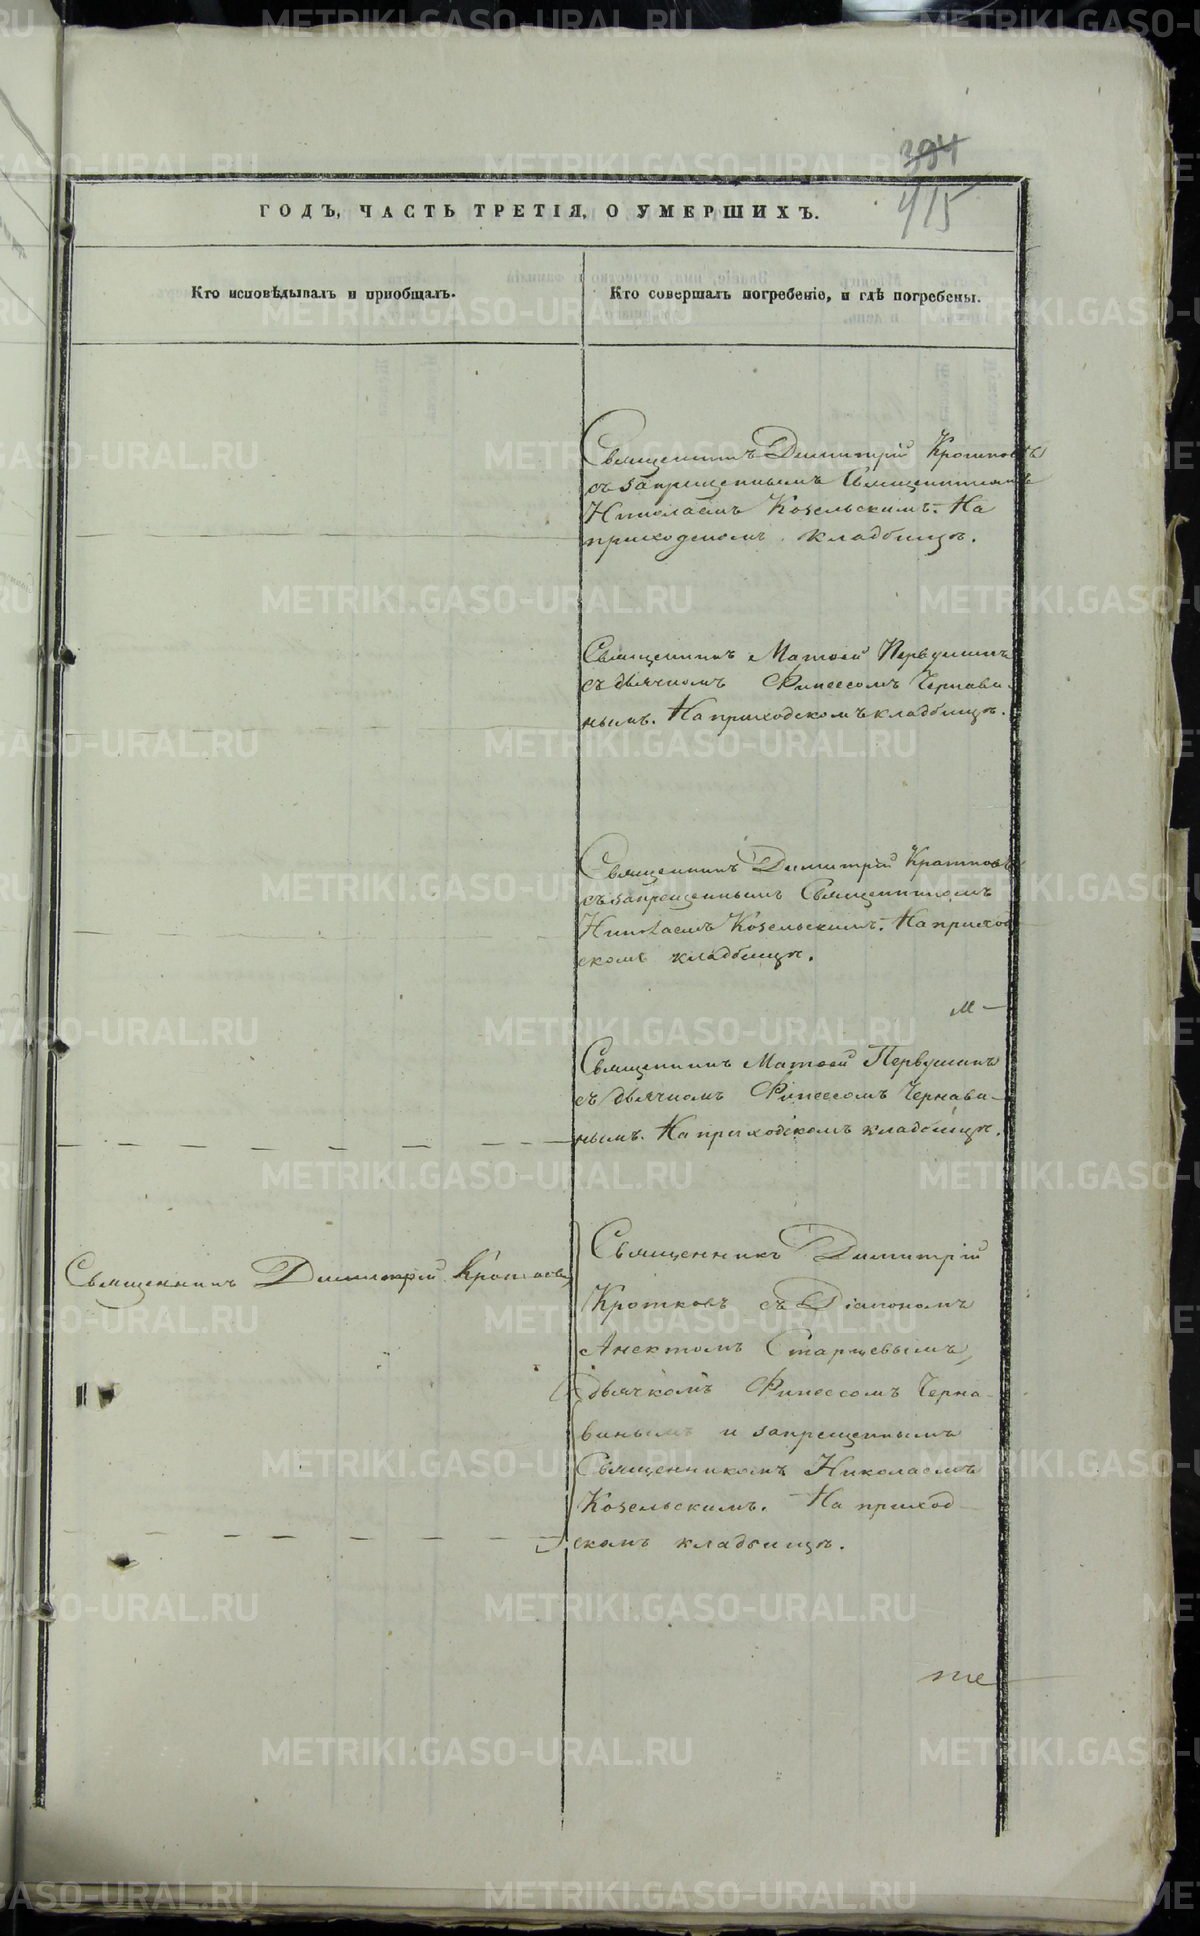 394
415
ГОДЪ, ЧАСТЬ ТРЕТІЯ, О УМЕРШИХЪ.
Кто исповѣдывалъ и пріобщалъ.
Кто совершалъ погребеніе, и гдѣ погребены.
Священникъ Димитрій Кротковъ
съ запрещеннымъ Священникомъ
Николаемъ Козельскимъ. На
приходскомъ кладбищѣ.
Священникъ Матѳей Первушинъ
съ дьячкомъ Финеесомъ Чернави-
нымъ. На приходскомъ кладбищѣ.
Священникъ Димитрій Кротковъ
съ запрещеннымъ Священникомъ
Николаемъ Козельскимъ. На приход
скомъ кладбищѣ.
Священникъ Матѳей Первушинъ
съ дьячкомъ Финеесомъ Чернави-
нымъ. На приходскомъ кладбищѣ.
Священникъ Димитрій Кротковъ
Священникъ Димитрій
Кротковъ съ Діакономъ
Анектомъ Старцевымъ,
дьячкомъ Финеесомъ Черна-
винымъ и запрещеннымъ
Священникомъ Николаемъ
Козельскимъ. На приход
скомъ кладбищѣ.
METRIKI.GASO-URAL.RU